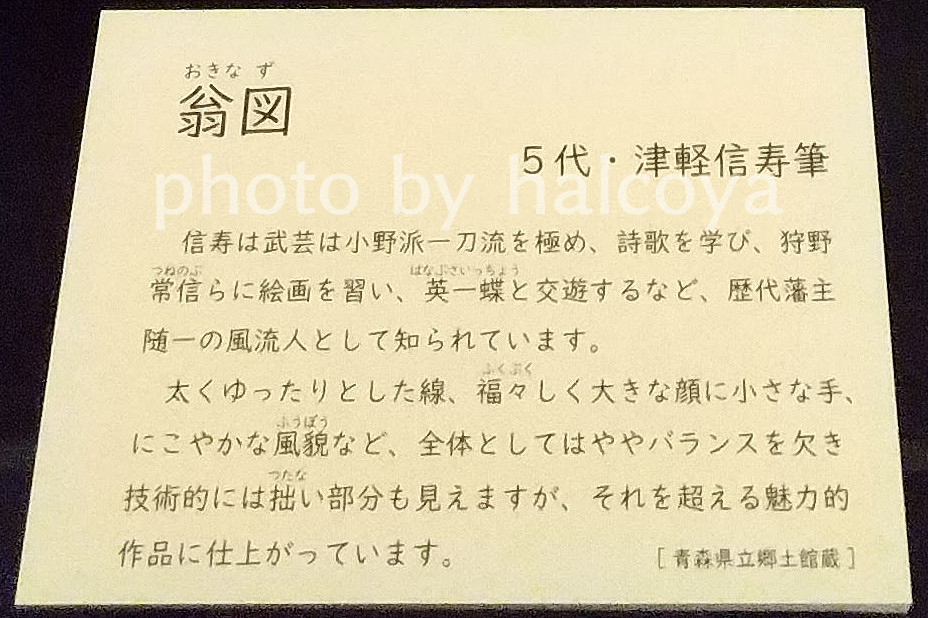 おきなず
翁図
5代・津軽信寿筆
photo by halcoya
信寿は武芸は小野派一刀流を極め、詩歌を学び、狩野
つねのぶ はなぶさいっちょう
常信らに絵画を習い、英一蝶と交遊するなど、歴代藩主
随一の風流人として知られています。
ふくぶく
太くゆったりとした線、福々しく大きな顔に小さな手、
ふうぼう
にこやかな風貌など、全体としてはややバランスを欠き
つたな
技術的には拙い部分も見えますが、それを超える魅力的
作品に仕上がっています。
[青森県立郷土館蔵]